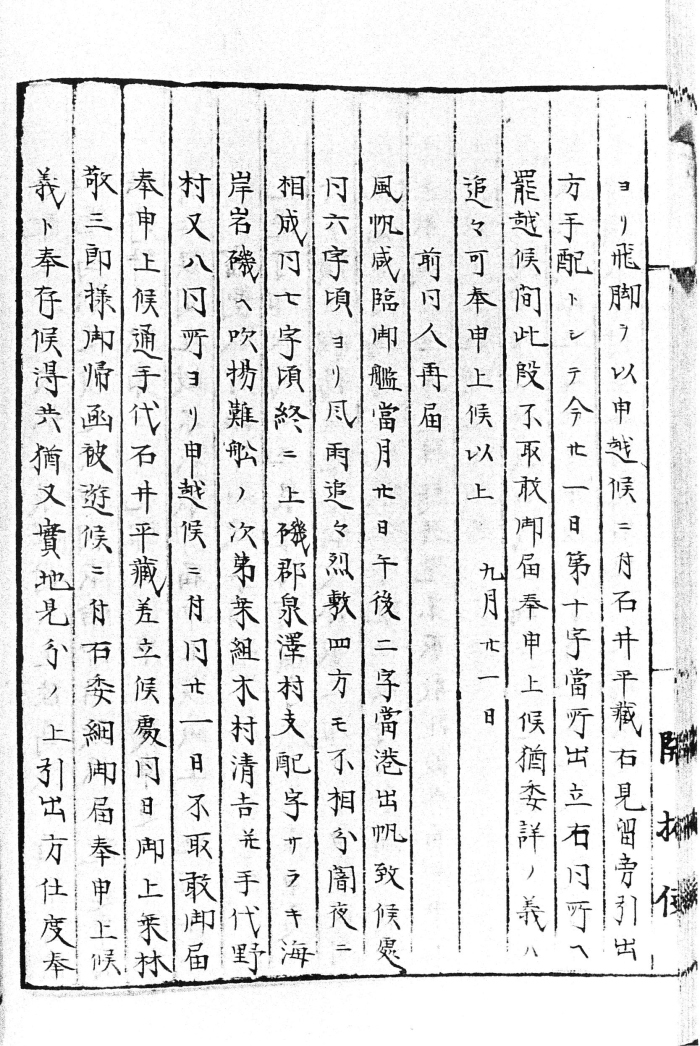 ヨリ飛脚ヲ以申越候ニ付石井平藏右見留旁引出
方手配トシテ今廿一日第十字當所出立右同所ヘ
罷越候間此段不取敢御届奉申上候猶委詳ノ義ハ
追々可奉申上候以上
九月廿一日
前同人再届
風帆咸臨御艦當月廿日午後二字當港出帆致候處
同六字頃ヨリ風雨追々烈敷四方モ不相分闇夜ニ
相成同七字頃終ニ上磯郡泉澤村支配字サラキ海
岸岩磯ヘ吹揚難船ノ次第乗組木村清吉并手代野
村又八同所ヨリ申越候ニ付同廿一日不取敢御届
奉申上候通手代石井平藏差立候處同日御上乗林
敬三郎様御帰函被遊候ニ付右委細御届奉申上候
義ト奉存候得共猶又實地見分ノ上引出方仕度奉
開拓使